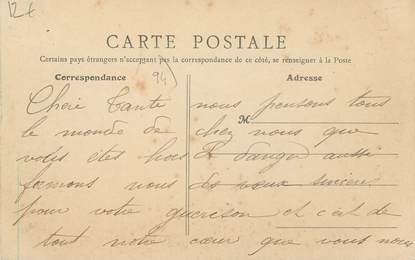 12€
CARTE POSTALE
Certains pays étrangers n'acceptent pas la correspondance de ce côté, se renseigner à la Poste
Correspondance
94
Adresse
M
Chère Tante nous pensons tous
le monde de chez nous que
vous êtes hors de danger aussi
formons nous des vœux sincères
pour votre guérison et c'est de
tout notre cœur que vous nous